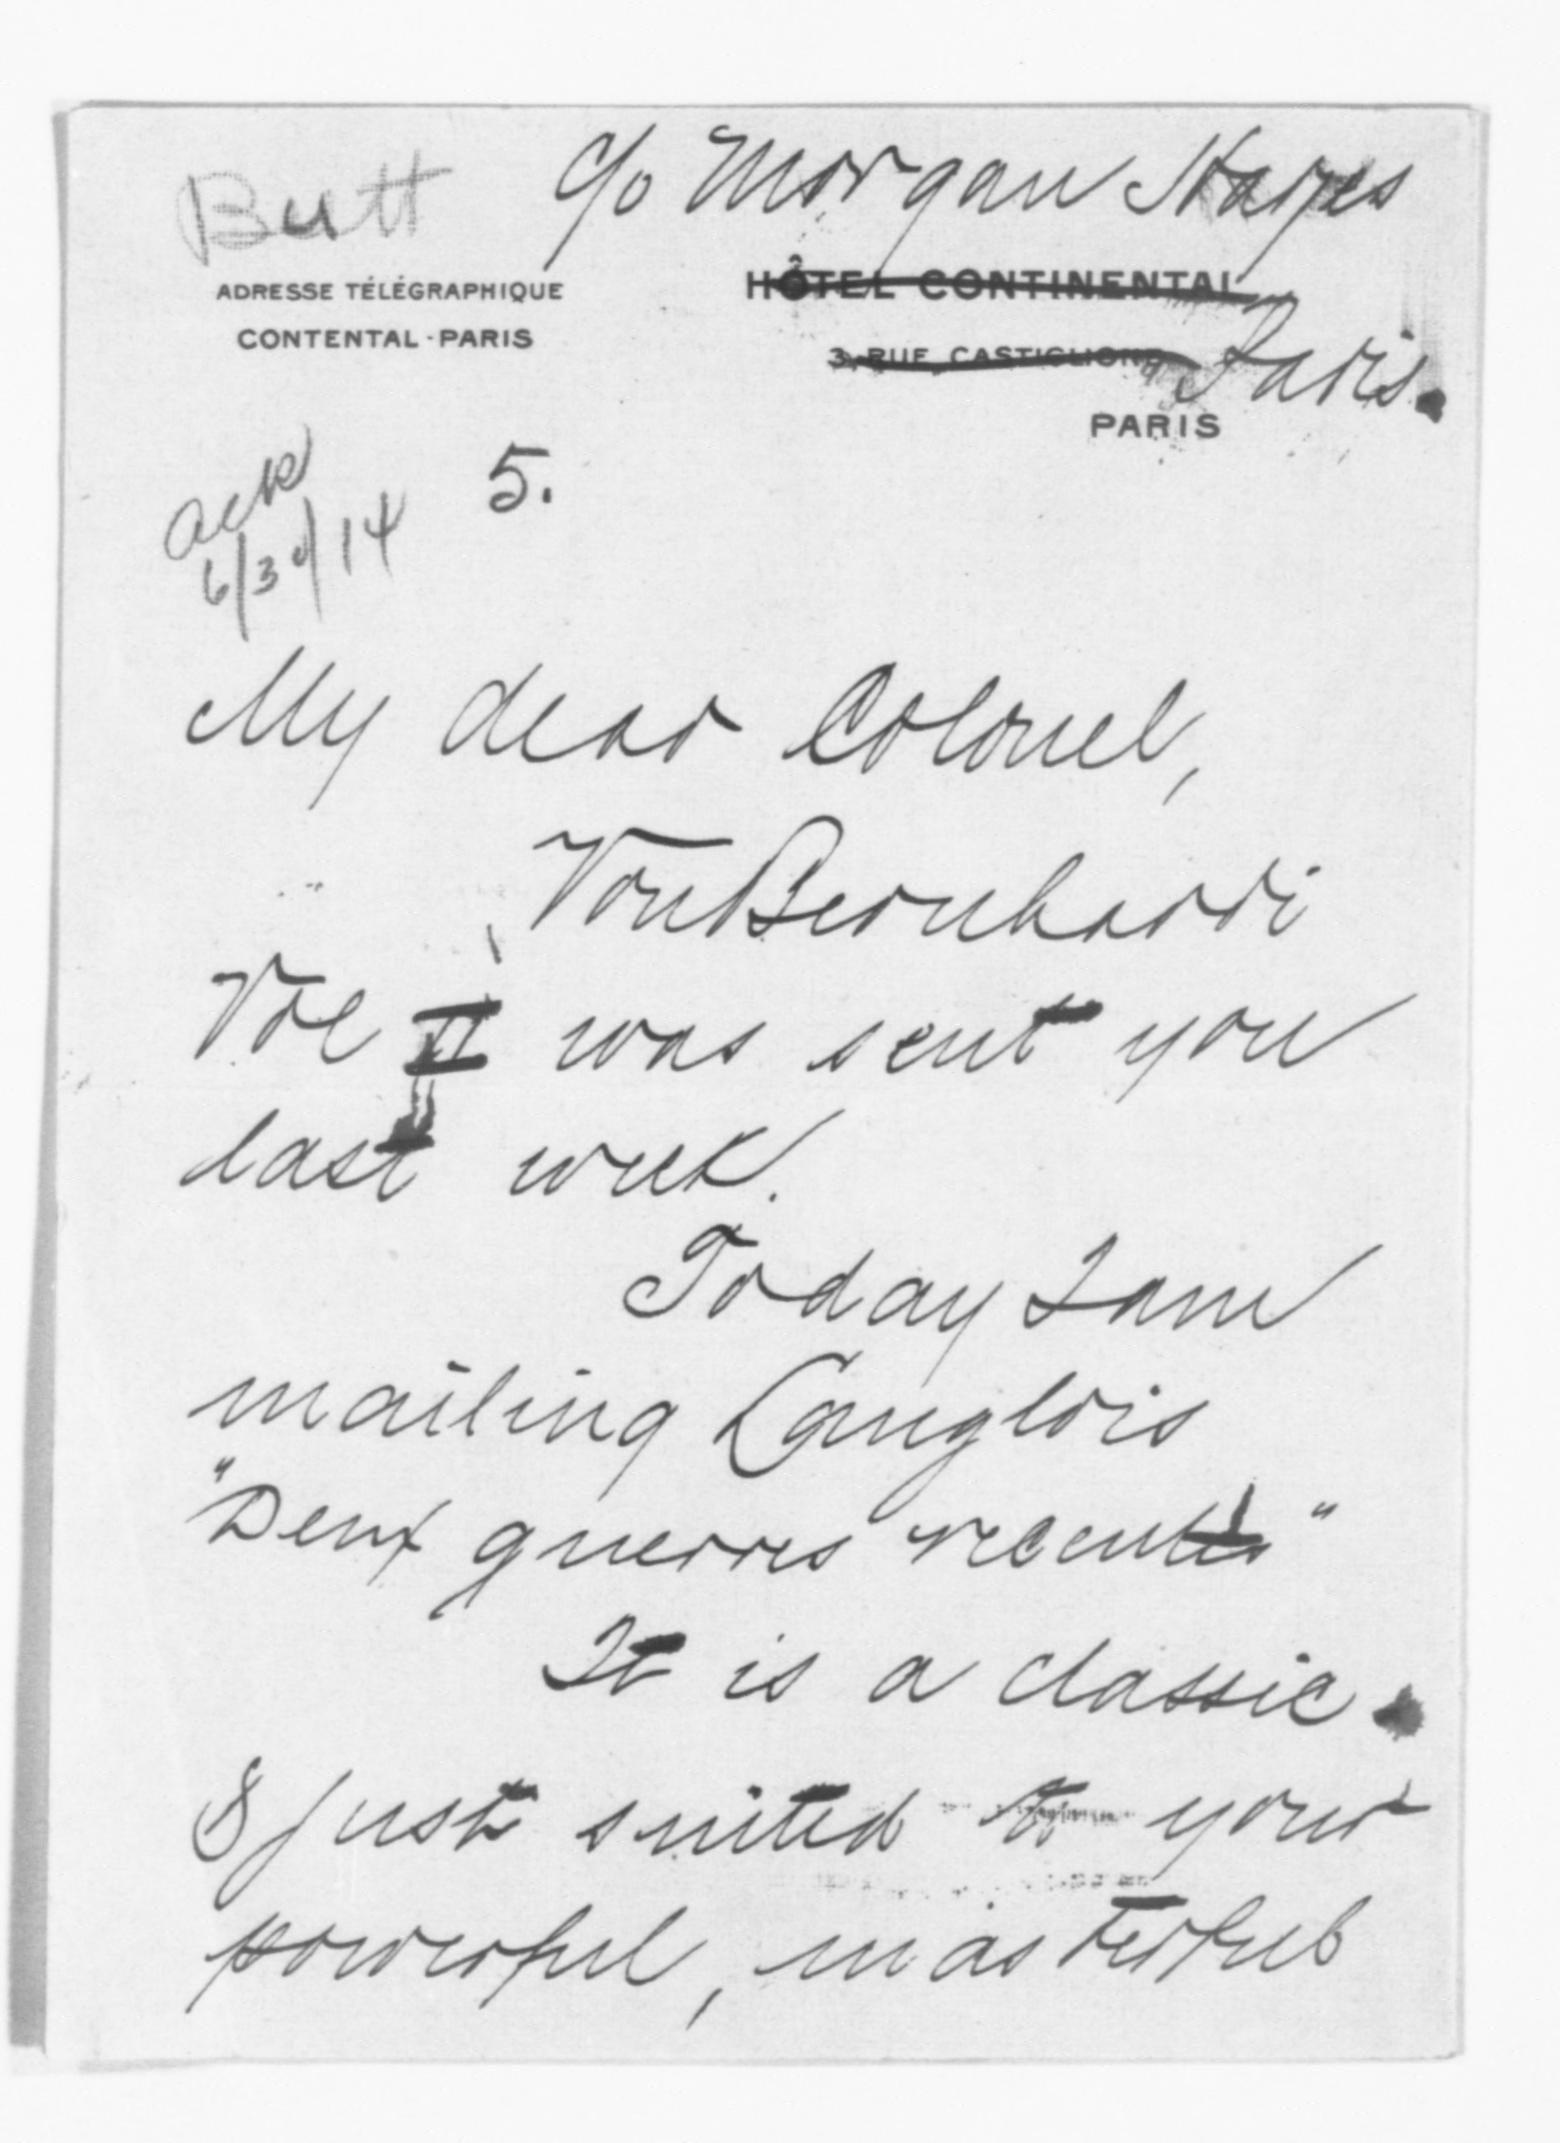 Butt
c/o Morgan Harjes
ADRESSE TÉLÉGRAPHIQUE
CONTENTAL-PARIS
HÔTEL CONTINENTAL
3, RUE CASTIGLIONE
Paris.
PARIS
ack
6/30/14
5.
My dear Colonel,
Von Bernhardi
Vol II was sent you
last week.
Today I am
mailing Langlois
"Deux guerres recentes"
It is a classic.
& just suited to your
powerful, masterful